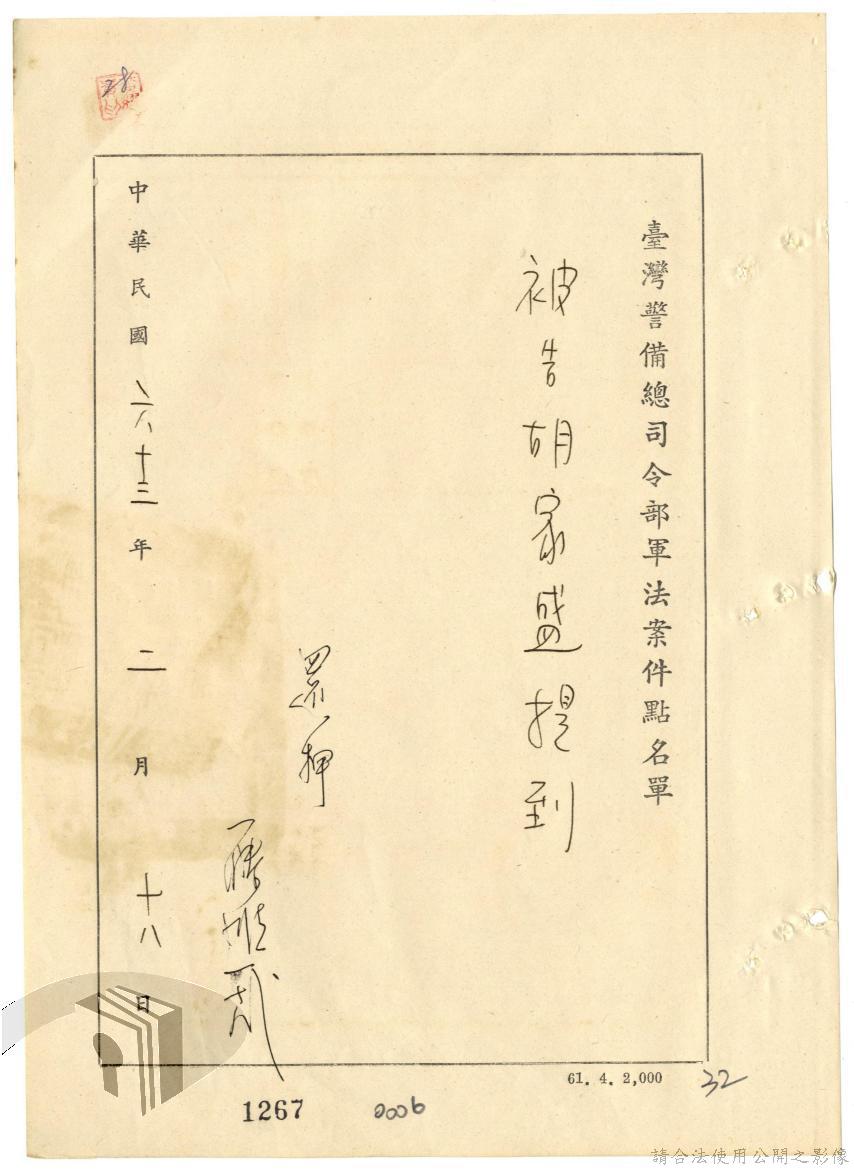 28
臺灣警備總司令部軍法案件點名單
被告胡家盛提到
還押
中華民國六十三年二月十八日
61. 4. 2,000
32
1267
0006
請合法使用公開之影像